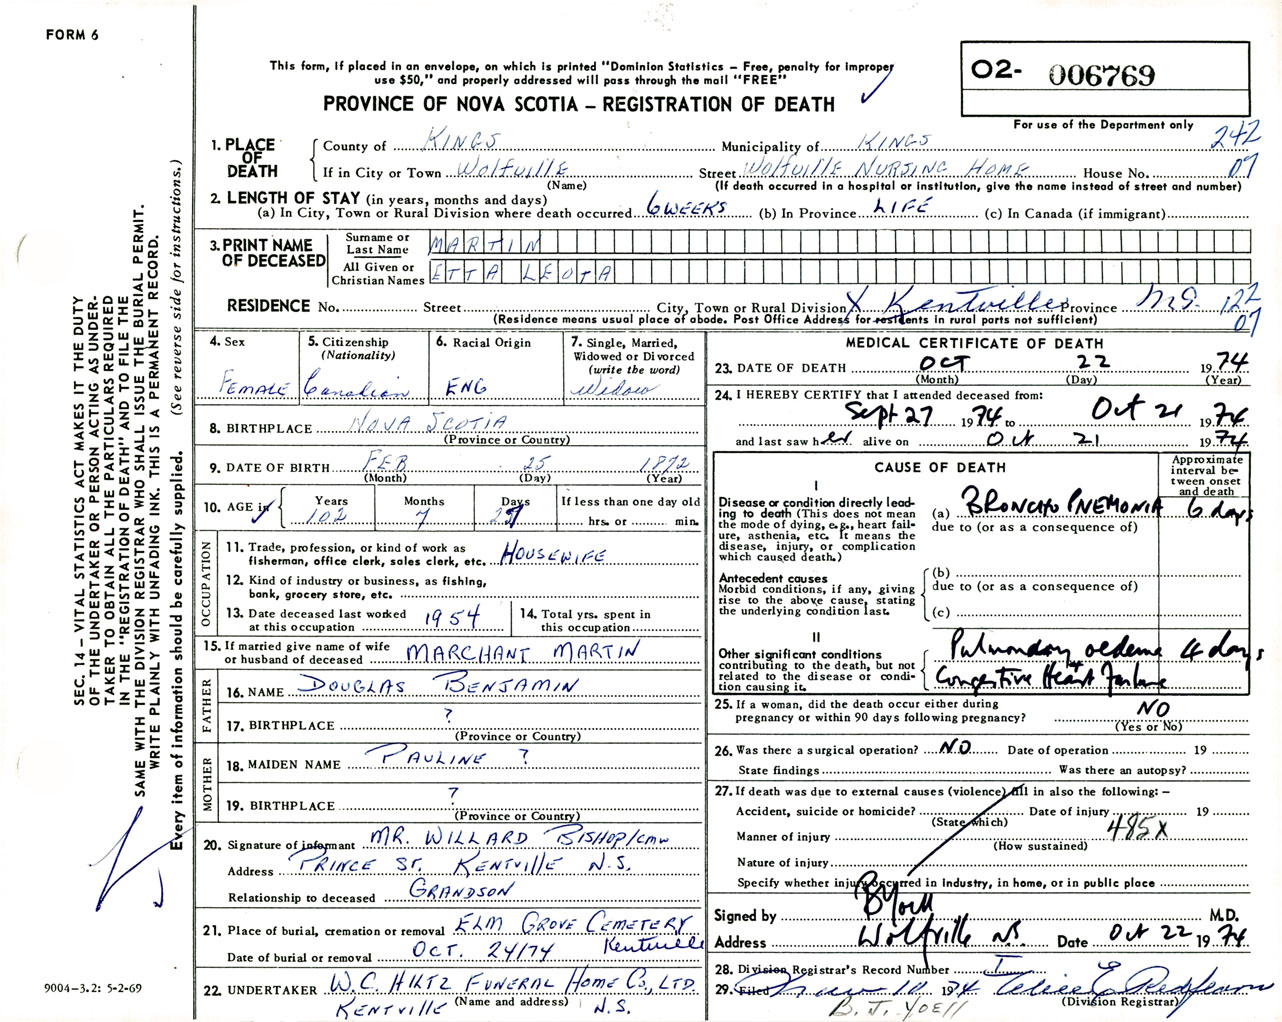 FORM 6
This form, if placed in an envelope, on which is printed "Dominion Statistics – Free, penalty for improper
use $50," and properly addressed will pass through the mail "FREE"
PROVINCE OF NOVA SCOTIA – REGISTRATION OF DEATH
02- 006769
For use of the Department only
242
07
1. PLACE OF DEATH
County of KINGS Municipality of KINGS
If in City or Town Wolfville Street Wolfville NURSING HOME House No.
(Name) (If death occurred in a hospital or institution, give the name instead of street and number)
2. LENGTH OF STAY (in years, months and days)
(a) In City, Town or Rural Division where death occurred 6 WEEKS (b) In Province LIFE (c) In Canada (if immigrant)
3. PRINT NAME OF DECEASED
Surname or Last Name MARTIN
All Given or Christian Names ETTA LEOTA
RESIDENCE No. Street City, Town or Rural Division X Kentville Province N.S. 122
07
(Residence means usual place of abode. Post Office Address for residents in rural parts not sufficient)
4. Sex
FEMALE
5. Citizenship
(Nationality)
Canadian
6. Racial Origin
ENG
7. Single, Married,
Widowed or Divorced
(write the word)
Widow
8. BIRTHPLACE NOVA SCOTIA
(Province or Country)
9. DATE OF BIRTH FEB 25 1872
(Month) (Day) (Year)
10. AGE is
Years Months Days If less than one day old
102 7 27 hrs. or min.
OCCUPATION
11. Trade, profession, or kind of work as
fisherman, office clerk, sales clerk, etc. HOUSEWIFE
12. Kind of industry or business, as fishing,
bank, grocery store, etc.
13. Date deceased last worked
at this occupation 1954
14. Total yrs. spent in
this occupation
15. If married give name of wife
or husband of deceased MARCHANT MARTIN
FATHER
16. NAME DOUGLAS BENJAMIN
17. BIRTHPLACE ?
(Province or Country)
MOTHER
18. MAIDEN NAME PAULINE ?
19. BIRTHPLACE ?
(Province or Country)
20. Signature of informant MR. WILLARD BISHOP/cmw
Address PRINCE ST. KENTVILLE N.S.
Relationship to deceased GRANDSON
21. Place of burial, cremation or removal ELM GROVE CEMETERY
Kentville
Date of burial or removal OCT. 24/74
22. UNDERTAKER W.C. HILTZ FUNERAL HOME CO., LTD.
(Name and address)
KENTVILLE N.S.
MEDICAL CERTIFICATE OF DEATH
23. DATE OF DEATH OCT 22 1974
(Month) (Day) (Year)
24. I HEREBY CERTIFY that I attended deceased from:
Sept 27 1974 to Oct 21 1974
and last saw her alive on Oct 21 1974
CAUSE OF DEATH
Approximate
interval be-
tween onset
and death
I
Disease or condition directly lead-
ing to death (This does not mean
the mode of dying, e.g., heart fail-
ure, asthenia, etc. It means the
disease, injury, or complication
which caused death.)
(a) BRONCHO PNEMONIA 6 days
due to (or as a consequence of)
Antecedent causes
Morbid conditions, if any, giving
rise to the above cause, stating
the underlying condition last.
(b)
due to (or as a consequence of)
(c)
II
Other significant conditions
contributing to the death, but not
related to the disease or condi-
tion causing it.
Pulmonary oedema 4 days
+
Congestive Heart Failure
25. If a woman, did the death occur either during
pregnancy or within 90 days following pregnancy? NO
(Yes or No)
26. Was there a surgical operation? NO Date of operation 19
State findings Was there an autopsy?
27. If death was due to external causes (violence) fill in also the following: –
Accident, suicide or homicide? Date of injury 19
(State which)
485X
Manner of injury
(How sustained)
Nature of injury
Specify whether injury occurred in industry, in home, or in public place
Signed by B Yoell M.D.
Address Wolfville N.S. Date Oct 22 1974
28. Division Registrar's Record Number
29. Filed Nov 10 1974
(Division Registrar)
B. J. YOELL
SEC. 14 – VITAL STATISTICS ACT MAKES IT THE DUTY
OF THE UNDERTAKER OR PERSON ACTING AS UNDER-
TAKER TO OBTAIN ALL THE PARTICULARS REQUIRED
IN THE "REGISTRATION OF DEATH" AND TO FILE THE
SAME WITH THE DIVISION REGISTRAR WHO SHALL ISSUE THE BURIAL PERMIT.
WRITE PLAINLY WITH UNFADING INK. THIS IS A PERMANENT RECORD.
Every item of information should be carefully supplied. (See reverse side for instructions.)
9004-3.2: 5-2-69